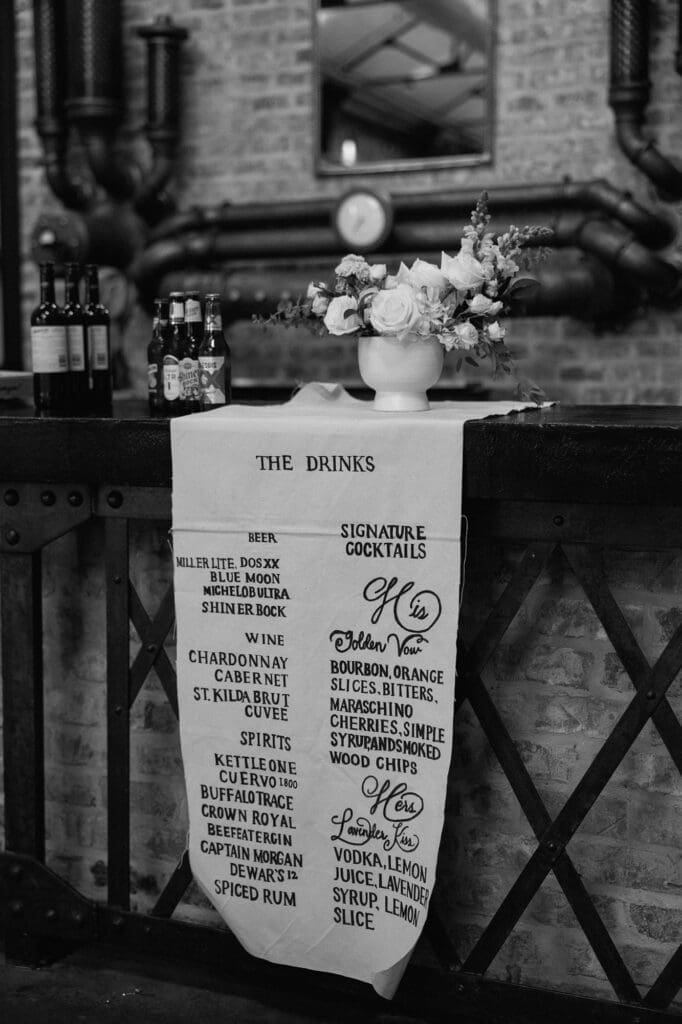 THE DRINKS
BEER
MILLER LITE, DOS XX
BLUE MOON
MICHELOB ULTRA
SHINER BOCK
WINE
CHARDONNAY
CABERNET
ST. KILDA BRUT
CUVEE
SPIRITS
KETTLE ONE
CUERVO 1800
BUFFALO TRACE
CROWN ROYAL
BEEFEATER GIN
CAPTAIN MORGAN
DEWAR'S 12
SPICED RUM
SIGNATURE
COCKTAILS
His
Golden Vow
BOURBON, ORANGE
SLICES, BITTERS,
MARASCHINO
CHERRIES, SIMPLE
SYRUP, AND SMOKED
WOOD CHIPS
Hers
Lavender Kiss
VODKA, LEMON
JUICE, LAVENDER
SYRUP, LEMON
SLICE